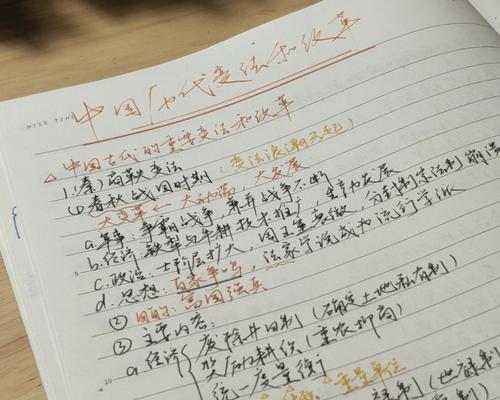 中国历代变法和改革
△中国古代的重要变法和改革
1.(秦)商鞅变法
(变法浪潮
①春秋战国时期
大变革—大动荡,大发展
a.军事:争霸战争,兼并战争不断
b.经济:铁犁与牛耕技术推广,生产力发展
c.政治:士阶层扩大,国王 ,分封制宗法制崩溃
d.思想:百家争鸣,法家学说成为流行学派
②目的:富国强兵
③主要内容:
a.经济
废除井田制(确定土地私有制)
奖励耕织(重农抑商)
统一度量衡
重量单位